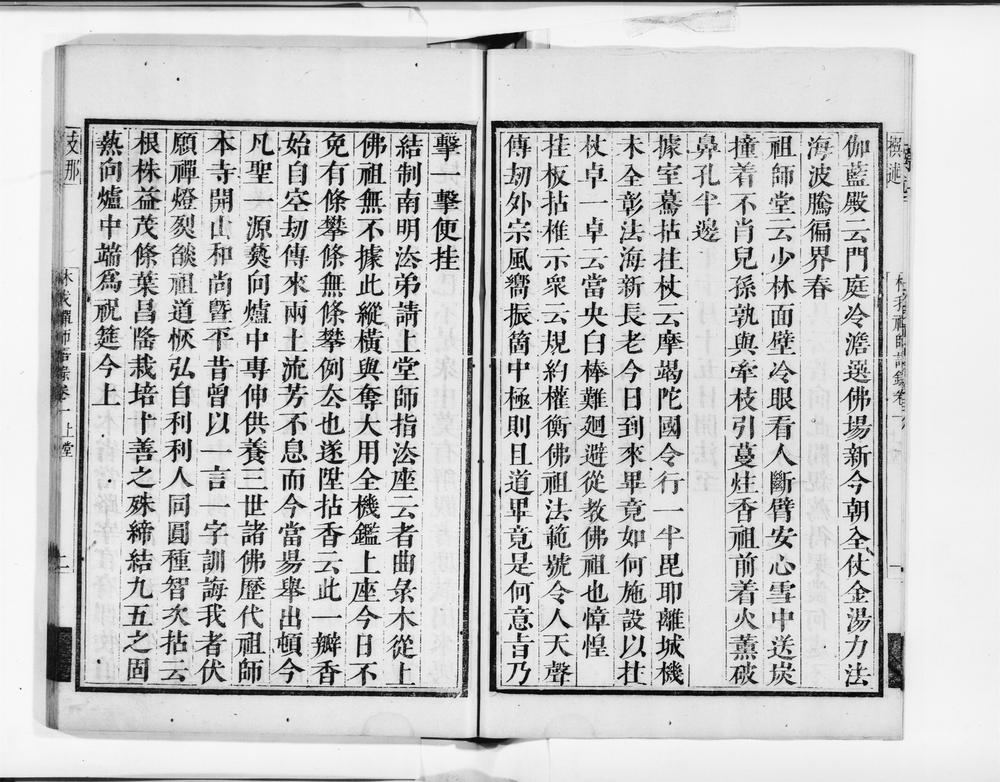 伽藍殿云門庭冷澹選佛場新今朝全仗金湯力法
海波騰徧界春
祖師堂云少林面壁冷眼看人斷臂安心雪中送炭
撞着不肖兒孫孰與牽枝引蔓炷香祖前着火薰破
鼻孔半邊
據室驀拈拄杖云摩竭陀國令行一半毘耶離城機
未全彰法海新長老今日到來畢竟如何施設以拄
杖卓一卓云當央白棒難廻避從教佛祖也慞惶
挂板拈椎示衆云規約權衡佛祖法範號令人天聲
傳刼外宗風嚮振箇中極則且道畢竟是何意旨乃
擊一擊便挂
結制南明㳒弟請上堂師指㳒座云者曲彔木從上
佛祖無不據此縱橫與奪大用全機鑑上座今日不
免有條攀條無條攀例厺也遂陞拈香云此一瓣香
始自空刼傳來兩土流芳不息而今當塲舉出頓今
凡聖一源爇向爐中專伸供養三世諸佛歷代祖師
本寺開山和尚曁平昔曾以一言一字訓誨我者伏
願禪燈裂燄祖道恢弘自利利人同圓種智次拈云
根株益茂條葉昌隆栽培十善之殊締結九五之固
爇向爐中端爲祝筵今上
支那
林我禪師語錄卷一上堂
二